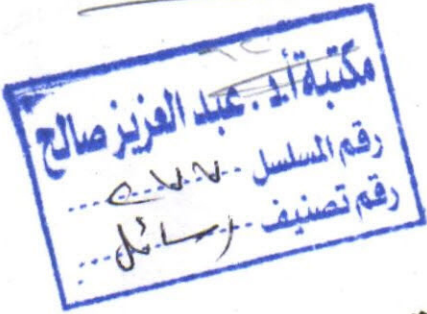 مكتبة أ.د. عبد العزيز صالح
رقم المسلسل
رقم تصنيف رسائل